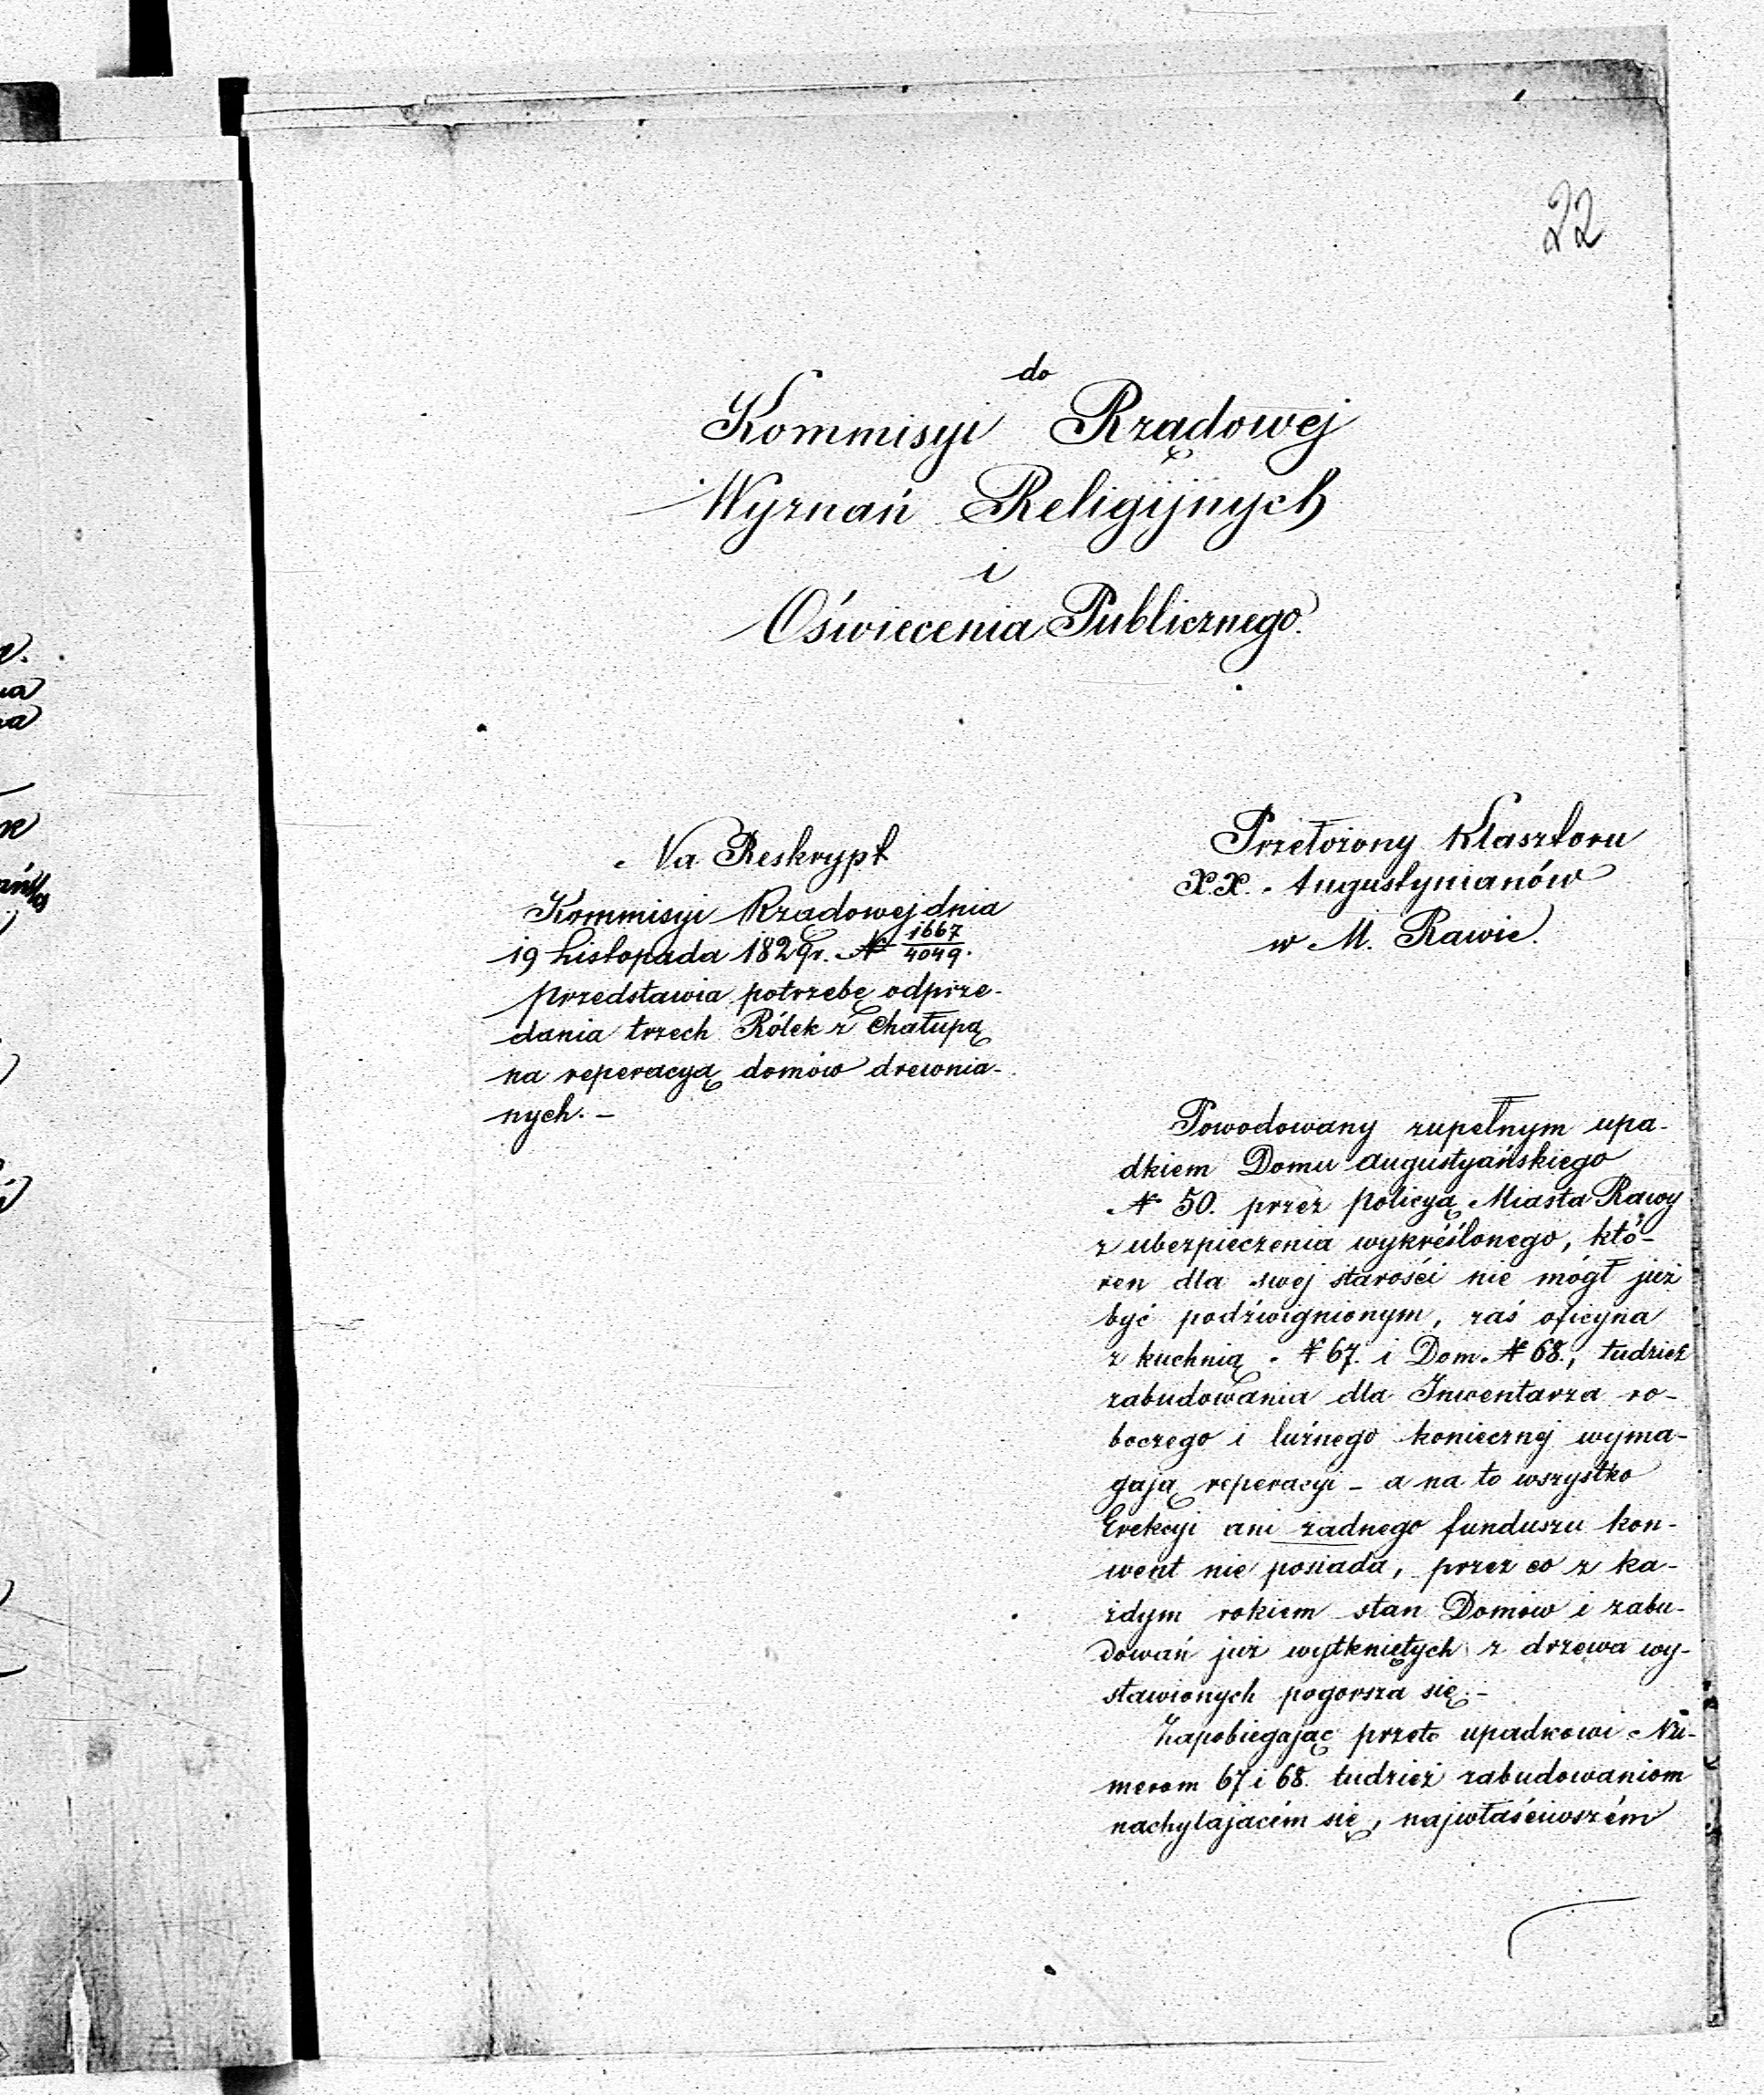 22
do
Kommisyi Rządowej
Wyznań Religijnych
i
Oświecenia Publicznego.
Na Reskrypt
Kommisyi Rządowej dnia
19 Listopada 1829r. N 1667/4049.
przedstawia potrzebę odprze-
dania trzech Rólek z Chałupą
na reperacyą domów drewnia-
nych. -
Przełożony Klasztoru
X.X. Augustynianów
w M. Rawie.
Powodowany zupełnym upa-
dkiem Domu augustyańskiego
N 50. przez policyą Miasta Rawy
z ubezpieczenia wykréślonego, któ-
ren dla swej starości nie mógł już
być podźwignionym, zaś oficyna
z kuchnią N 67. i Dom N 68., tudzież
zabudowania dla Inwentarza ro-
boczego i luźnego koniecznej wyma-
gają reperacyi - a na to wszystko
Erekcyi ani żadnego funduszu kon-
went nie posiada, przez co z ka-
żdym rokiem stan Domów i zabu-
dowań już wytkniętych z drzewa wy-
stawionych pogorsza się. -
Zapobiegając przeto upadkowi Nu-
merom 67 i 68. tudzież zabudowaniom
nachylającém się, najwłaściwszém